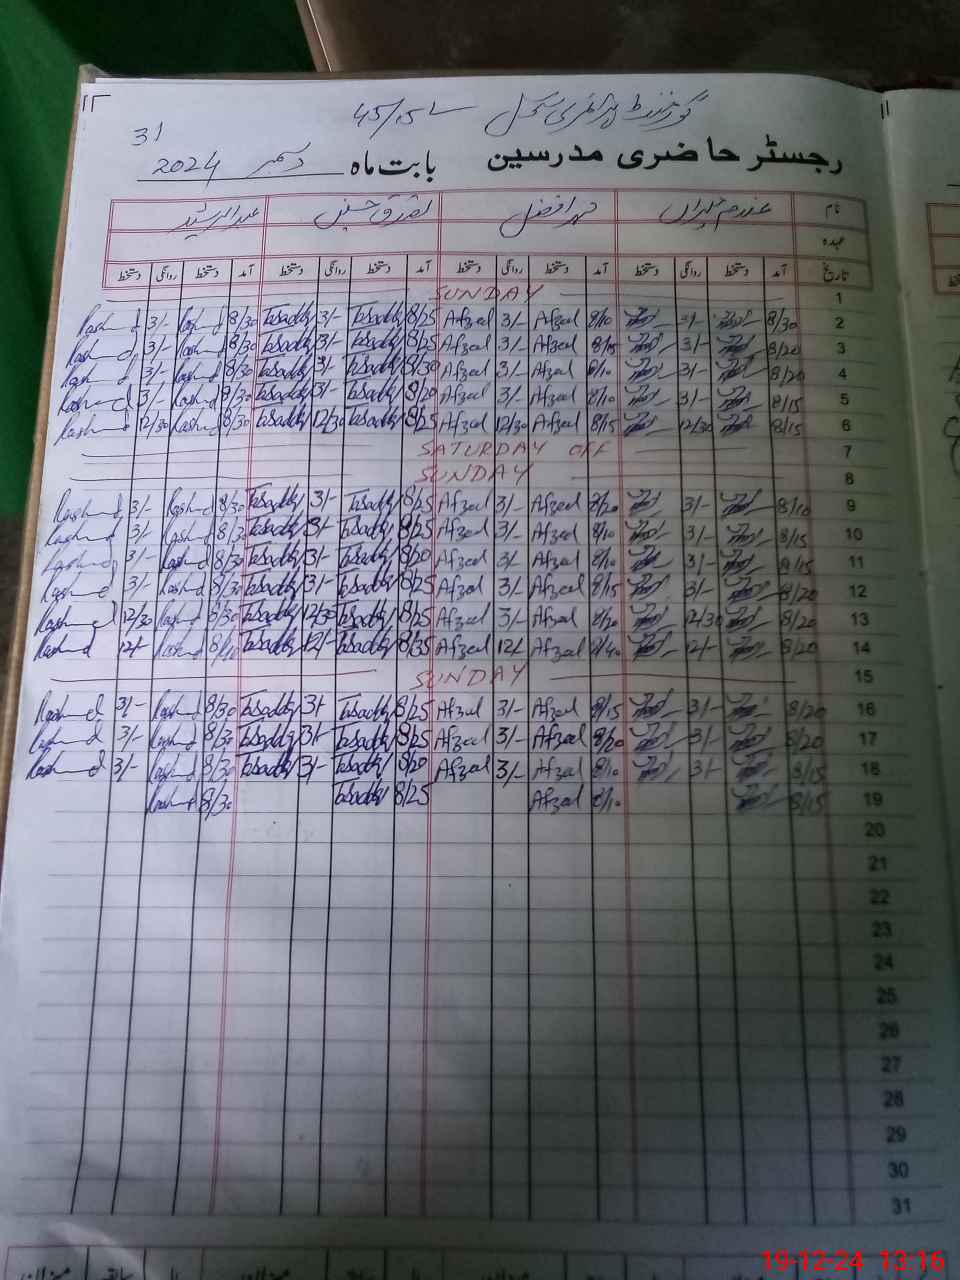 گورنمنٹ پرائمری سکول 45/15-L
31
رجسٹر حاضری مدرسین بابت ماہ دسمبر 2024
نام محمد افضل تصدق حسین عبدالرشید
عہدہ
تاریخ آمد دستخط روانگی دستخط آمد دستخط روانگی دستخط آمد دستخط روانگی دستخط آمد دستخط روانگی دستخط
SUNDAY 1
Rashid 3/- Rashid 8/30 Tasaddq 3/- Tasaddq 8/25 Afzal 3/- Afzal 8/10 3/- 8/30 2
Rashid 3/- Rashid 8/30 Tasaddq 3/- Tasaddq 8/25 Afzal 3/- Afzal 8/15 3/- 8/20 3
Rashid 3/- Rashid 8/30 Tasaddq 3/- Tasaddq 8/30 Afzal 3/- Afzal 8/10 3/- 8/20 4
Rashid 3/- Rashid 8/30 Tasaddq 3/- Tasaddq 8/20 Afzal 3/- Afzal 8/10 3/- 8/15 5
Rashid 12/30 Rashid 8/30 Tasaddq 12/30 Tasaddq 8/25 Afzal 12/30 Afzal 8/15 12/30 8/15 6
SATURDAY OFF 7
SUNDAY 8
Rashid 3/- Rashid 8/30 Tasaddq 3/- Tasaddq 8/25 Afzal 3/- Afzal 8/20 3/- 8/10 9
Rashid 3/- Rashid 8/30 Tasaddq 3/- Tasaddq 8/25 Afzal 3/- Afzal 8/10 3/- 8/15 10
Rashid 3/- Rashid 8/30 Tasaddq 3/- Tasaddq 8/20 Afzal 3/- Afzal 8/10 3/- 8/15 11
Rashid 3/- Rashid 8/30 Tasaddq 3/- Tasaddq 8/25 Afzal 3/- Afzal 8/15 3/- 8/20 12
Rashid 12/30 Rashid 8/30 Tasaddq 12/30 Tasaddq 8/25 Afzal 3/- Afzal 8/20 12/30 8/20 13
Rashid 12/- Rashid Tasaddq 12/- Tasaddq 8/35 Afzal 12/- Afzal 8/40 12/- 8/20 14
SUNDAY 15
Rashid 3/- Rashid 8/30 Tasaddq 3/- Tasaddq 8/25 Afzal 3/- Afzal 8/15 3/- 8/20 16
Rashid 3/- Rashid 8/30 Tasaddq 3/- Tasaddq 8/25 Afzal 3/- Afzal 8/20 3/- 8/20 17
Rashid 3/- Rashid 8/30 Tasaddq 3/- Tasaddq 8/20 Afzal 3/- Afzal 8/10 3/- 8/15 18
Rashid 8/30 Tasaddq 8/25 Afzal 8/10 8/15 19
20
21
22
23
24
25
26
27
28
29
30
31
19-12-24 13:16